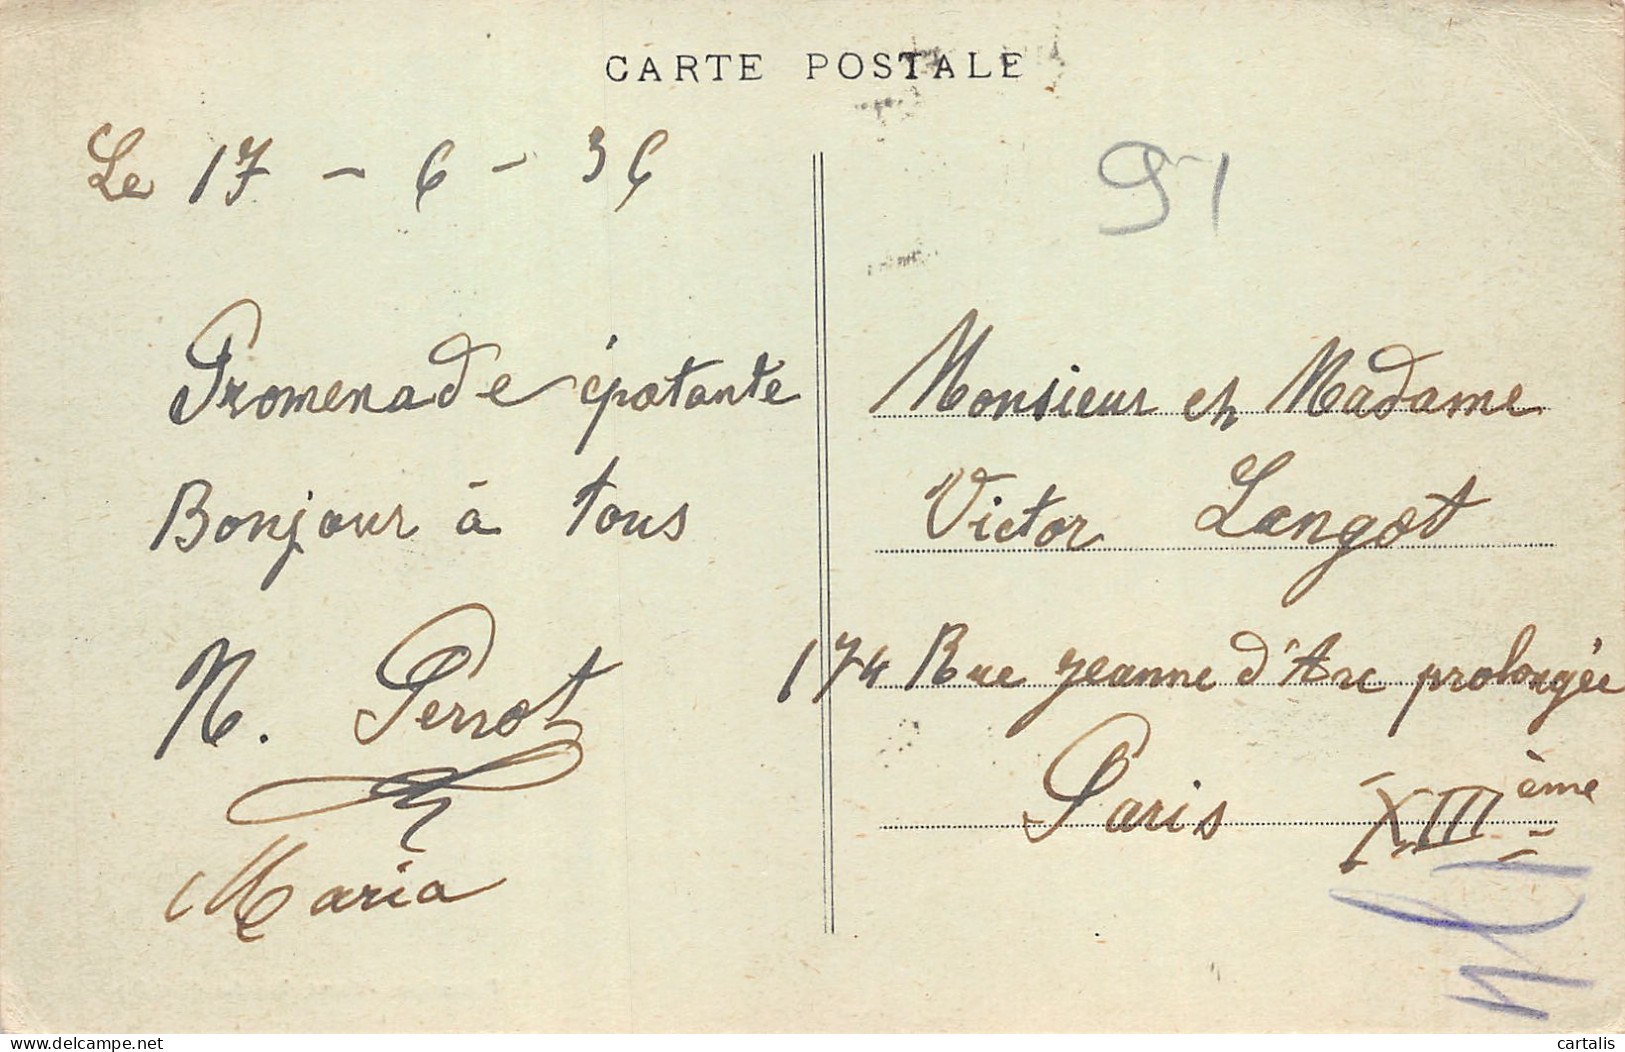 CARTE POSTALE
Le 17 - 6 - 36
Promenade épatante
Bonjour à tous
N. Perrot
Maria
91
Monsieur et Madame
Victor Langot
174 Rue Jeanne d'Arc prolongée
Paris XIII ème
delcampe.net
cartalis